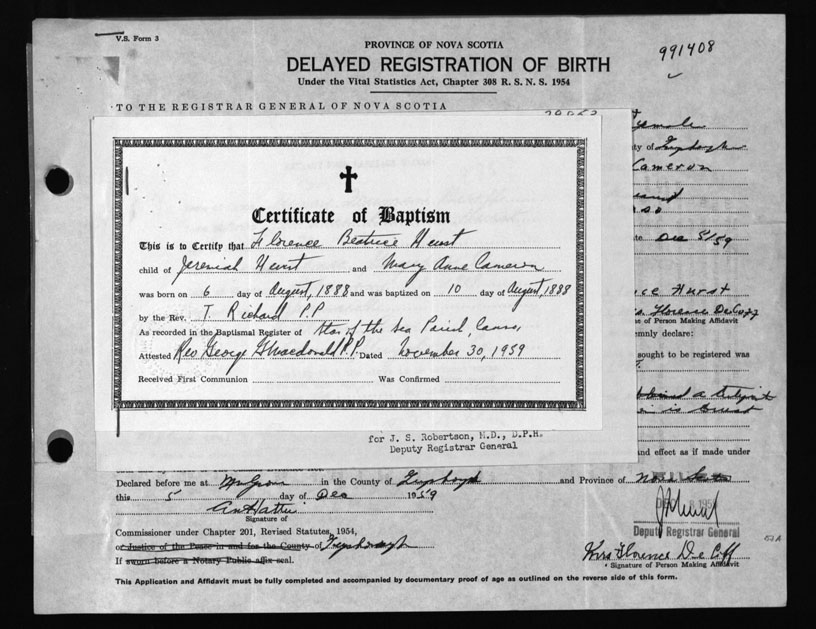 V.S. Form 3
PROVINCE OF NOVA SCOTIA
991408
DELAYED REGISTRATION OF BIRTH
Under the Vital Statistics Act, Chapter 308 R. S. N. S. 1954
TO THE REGISTRAR GENERAL OF NOVA SCOTIA
Certificate of Baptism
This is to Certify that Florence Beatrice Hurst
child of Jeremiah Hurst and Mary Anne Cameron
was born on 6 day of August, 1888 and was baptized on 10 day of August, 1888
by the Rev. T. Richard P.P.
As recorded in the Baptismal Register of Star of the Sea Parish, Canso,
Attested Rev George G Macdonald P.P. Dated November 30, 1959
Received First Communion Was Confirmed
for J. S. Robertson, M.D., D.P.H.
Deputy Registrar General
Cameron
Dec 5/59
Hurst
Florence
of Person Making Affidavit
emnly declare:
sought to be registered was
and effect as if made under
Declared before me at in the County of and Province of Nova
this 5 day of Dec 1959
Signature of
Deputy Registrar General
Commissioner under Chapter 201, Revised Statutes, 1954,
or Justice of the Peace in and for the County of
If sworn before a Notary Public affix seal.
Mrs Florence
Signature of Person Making Affidavit
This Application and Affidavit must be fully completed and accompanied by documentary proof of age as outlined on the reverse side of this form.